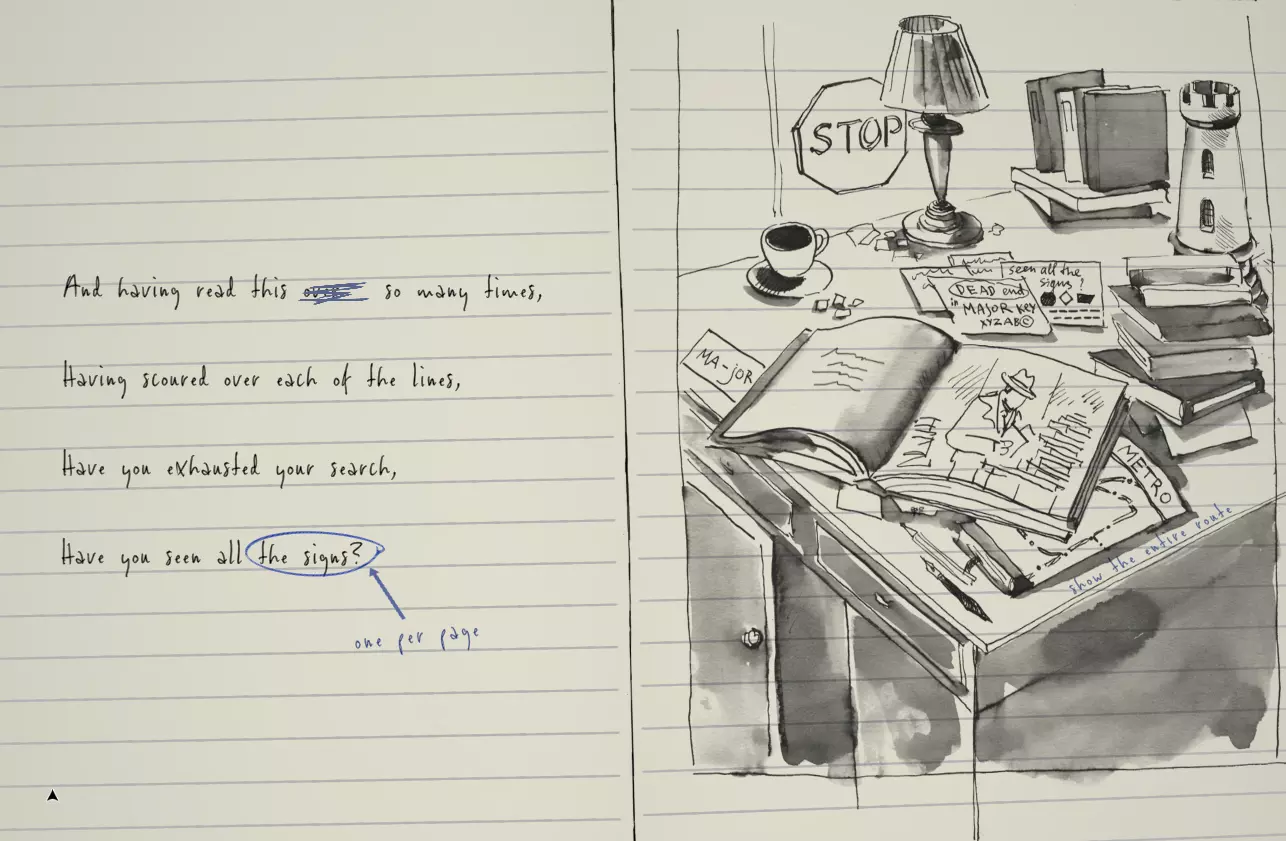 And having read this so many times,
Having scoured over each of the lines,
Have you exhausted your search,
Have you seen all the signs?
one per page
STOP
seen all the
signs?
DEAD end
in MAJOR KEY
XYZAB©
MA-jOR
METRO
show the entire route